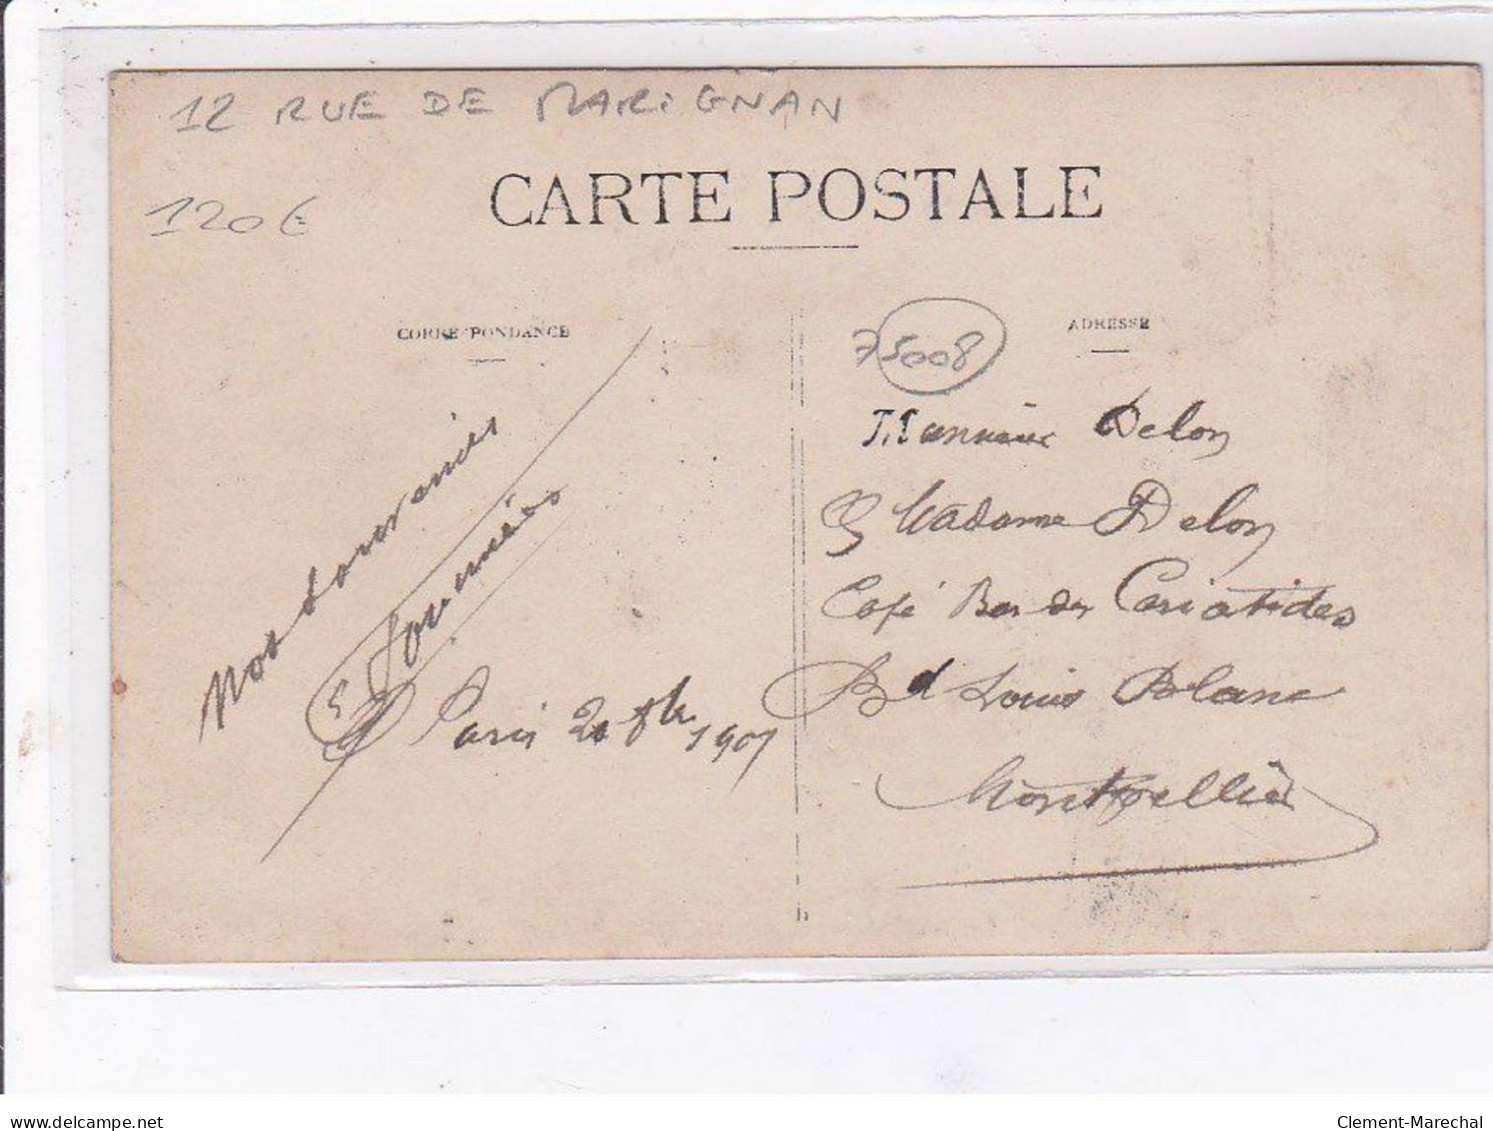 12 RUE DE MARiGNAN
120€
CARTE POSTALE
CORRESPONDANCE
ADRESSE
75008
Nos
Paris 2 1907
Monsieur Delon
& Madame Delon
Café Bar des Cariatides
Bd Louis Blanc
Montpellier
delcampe.net
Clement-Marechal